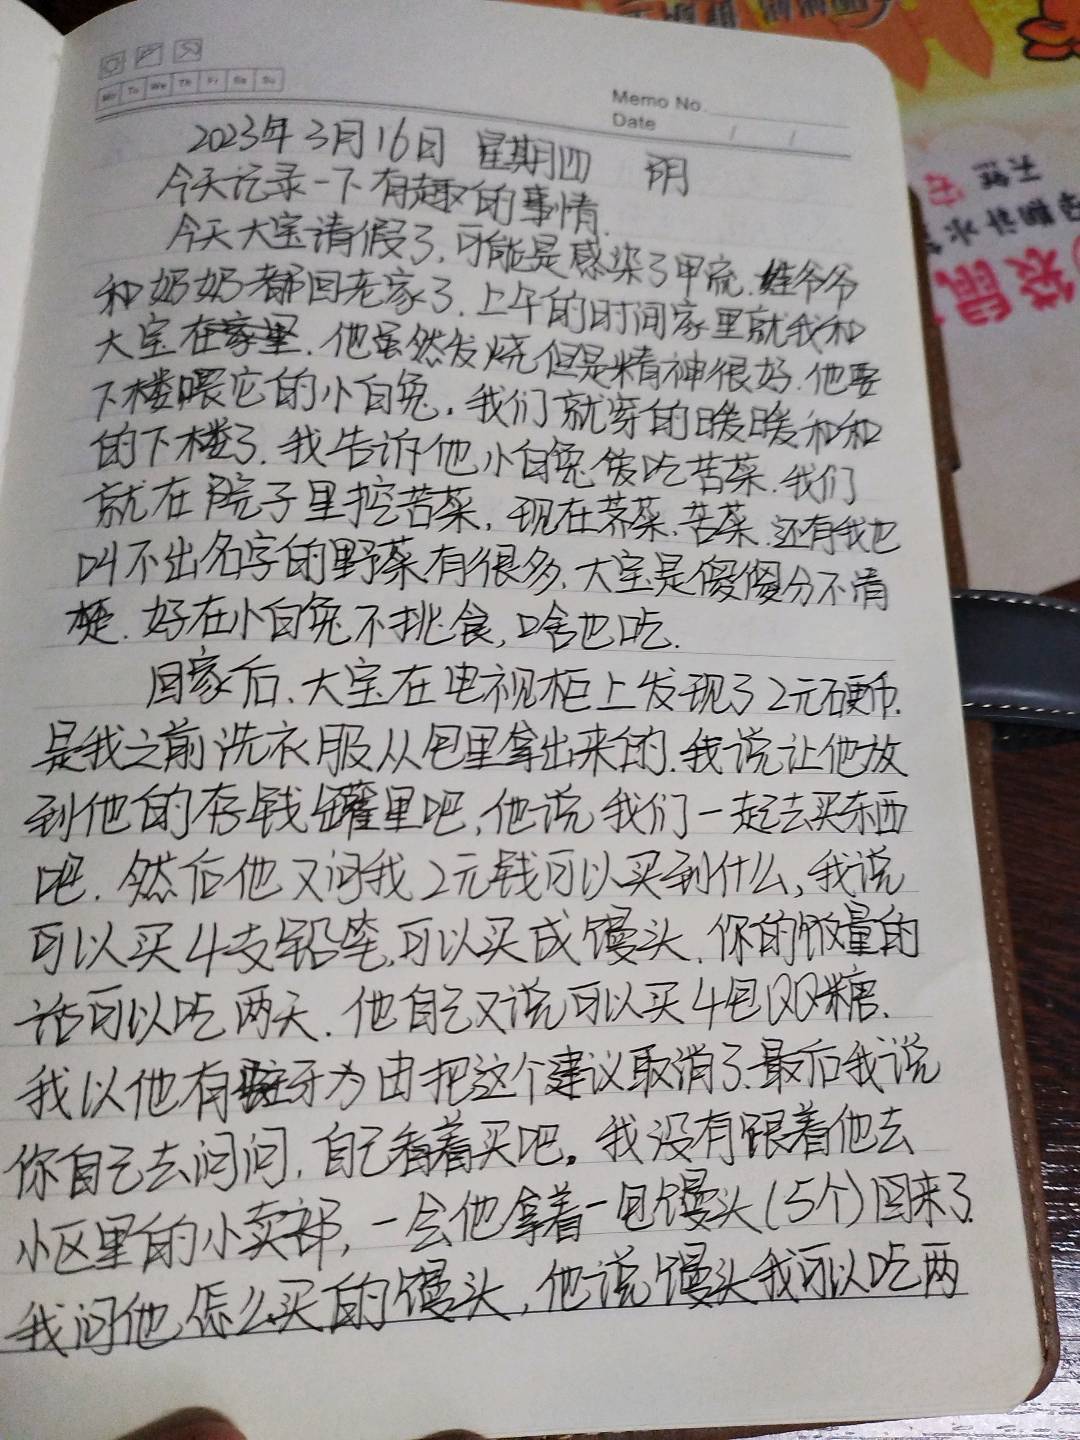 Mo Tu We Th Fr Sa Su
Memo No.
Date / /
2023年3月16日 星期四 阴
今天记录一下有趣的事情.
今天大宝请假了,可能是感染了甲流.爷爷
和奶奶都回老家了.上午的时间家里就我和
大宝在家里.他虽然发烧但是精神很好.他要
下楼喂它的小白兔.我们就穿的暖暖和和
的下楼了.我告诉他小白兔爱吃苦菜.我们
就在院子里挖苦菜,现在荠菜.苦菜.还有我也
叫不出名字的野菜有很多.大宝是傻傻分不清
楚.好在小白兔不挑食,啥也吃.
回家后.大宝在电视柜上发现了2元硬币.
是我之前洗衣服从包里拿出来的.我说让他放
到他的存钱罐里吧,他说我们一起去买东西
吧.然后他又问我2元钱可以买到什么,我说
可以买4支铅笔,可以买成馒头.你的饭量的
话可以吃两天.他自己又说可以买4包QQ糖.
我以他有蛀牙为由把这个建议取消了.最后我说
你自己去问问,自己看着买吧。我没有跟着他去
小区里的小卖部,一会他拿着一包馒头(5个)回来了.
我问他怎么买的馒头,他说馒头我可以吃两